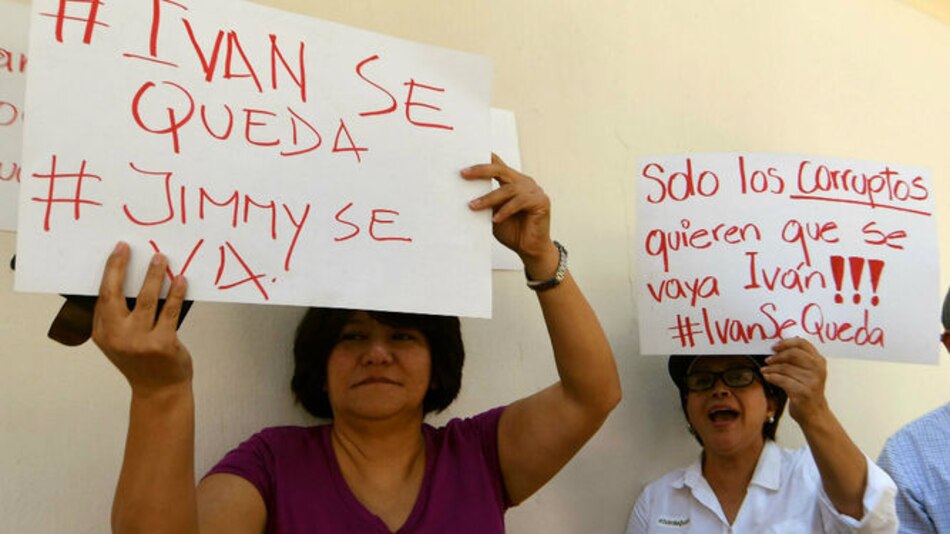 #IVAN SE
QUEDA
#JIMMY SE
VA.
Solo los corruptos
quieren que se
vaya Iván!!!
#IvanSeQueda